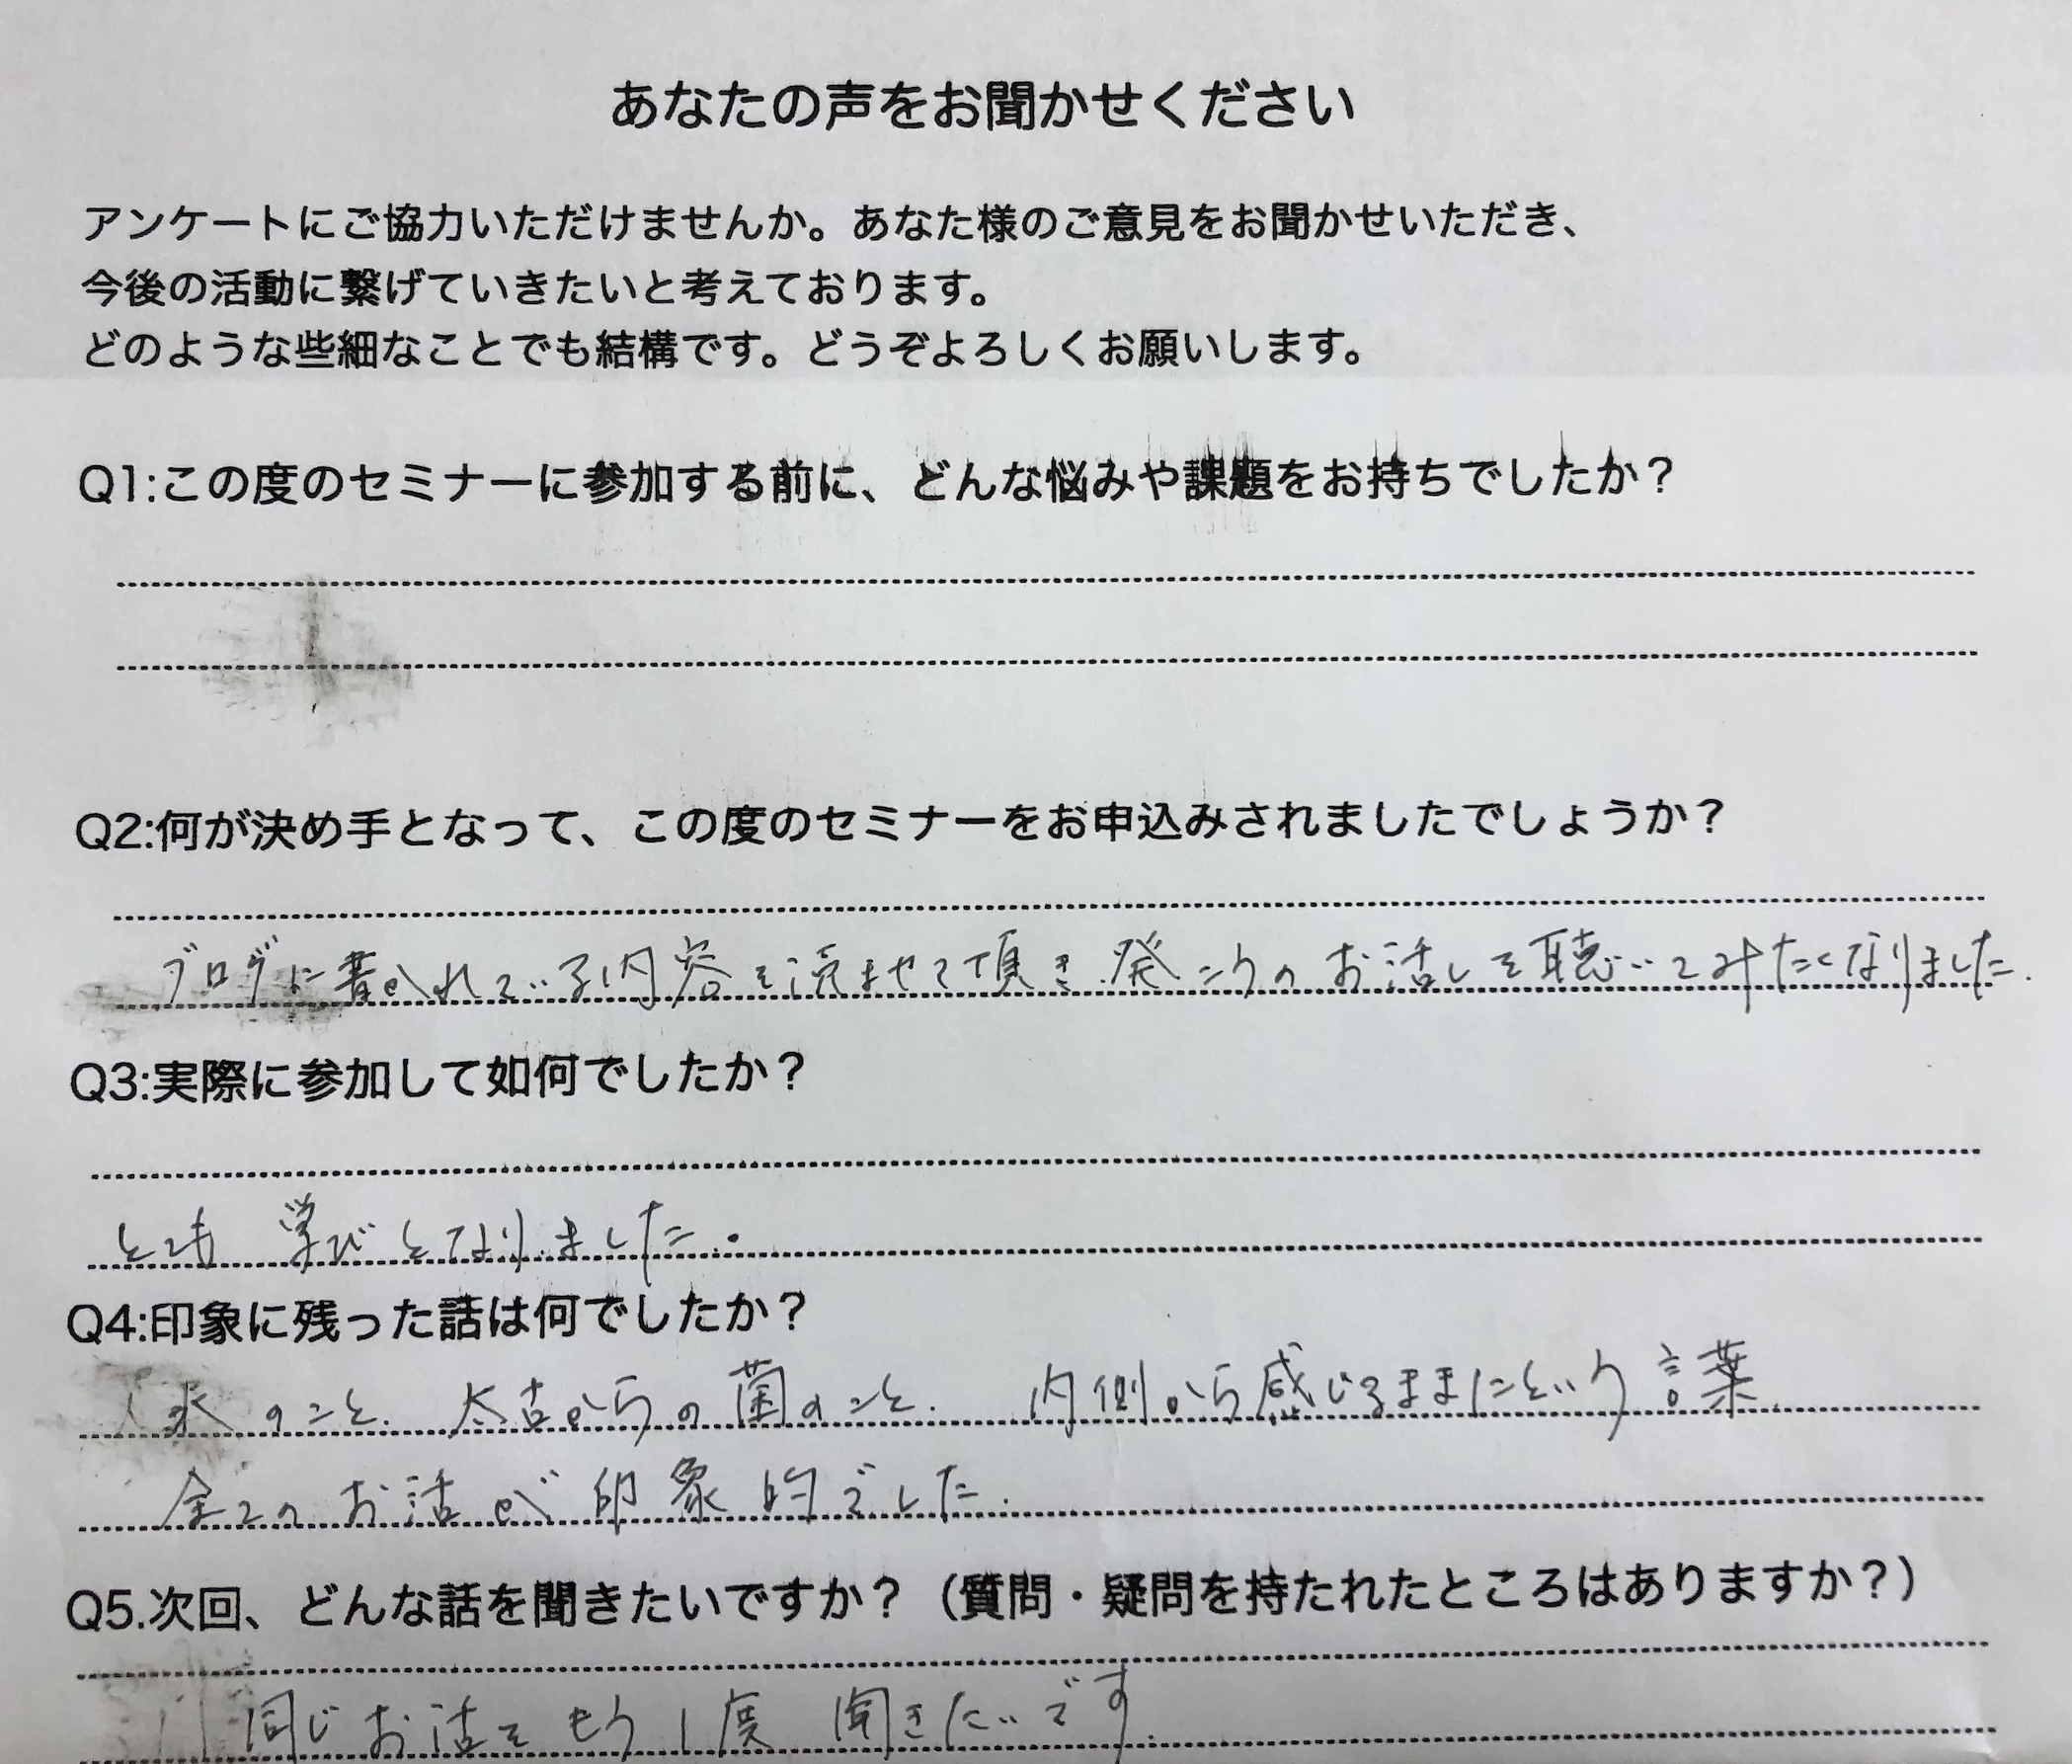 あなたの声をお聞かせください
アンケートにご協力いただけませんか。あなた様のご意見をお聞かせいただき、
今後の活動に繋げていきたいと考えております。
どのような些細なことでも結構です。どうぞよろしくお願いします。
Q1:この度のセミナーに参加する前に、どんな悩みや課題をお持ちでしたか？
Q2:何が決め手となって、この度のセミナーをお申込みされましたでしょうか？
ブログに書かれている内容を読ませて頂き、のお話しを聴いてみたくなりました.
Q3:実際に参加して如何でしたか？
とても 学びとなりました。
Q4:印象に残った話は何でしたか？
のこと. 太古からの菌のこと. 内側から感じるままにという言葉.
全てのお話が印象的でした.
Q5.次回、どんな話を聞きたいですか？（質問・疑問を持たれたところはありますか？）
同じお話をもう1度 聞きたいです.